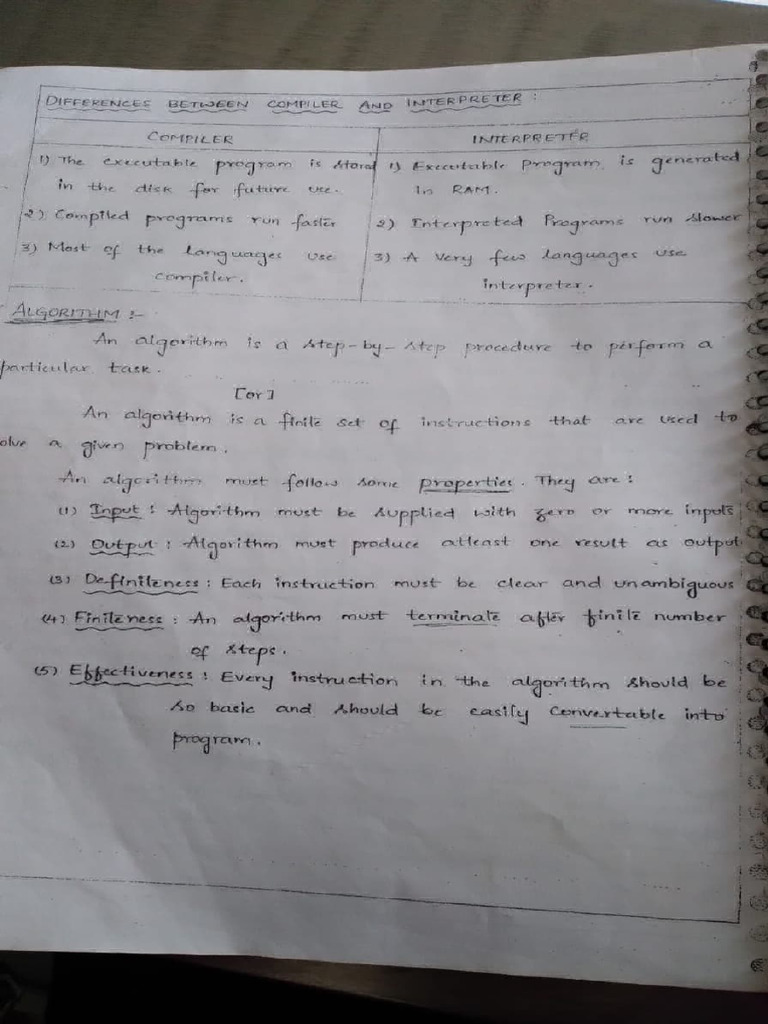 DIFFERENCES BETWEEN COMPILER AND INTERPRETER :
COMPILER
INTERPRETER
1) The executable program is stored
in the disk for future use.
2) Compiled programs run faster
3) Most of the languages use
compiler.
1) Executable program is generated
in RAM.
2) Interpreted Programs run slower
3) A Very few languages use
interpreter.
ALGORITHM :-
An algorithm is a step-by-step procedure to perform a
particular task.
[or]
An algorithm is a finite set of instructions that are used to
olve a given problem.
An algorithm must follow some properties. They are :
(1) Input : Algorithm must be supplied with zero or more inputs
(2) Output : Algorithm must produce atleast one result as output
(3) Definiteness : Each instruction must be clear and unambiguous
(4) Finiteness : An algorithm must terminate after finite number
of steps.
(5) Effectiveness : Every instruction in the algorithm should be
so basic and should be easily convertable into
program.